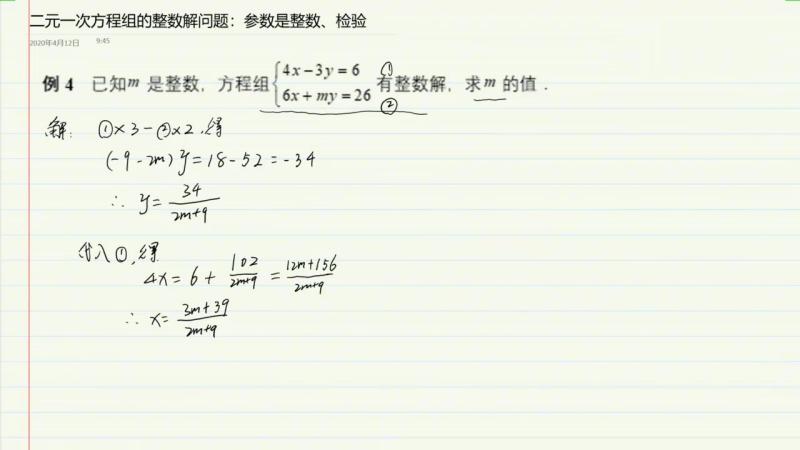 二元一次方程组的整数解问题：参数是整数、检验
2020年4月12日 9:45
例 4 已知 m 是整数，方程组 { 4x－3y＝6 ① 有整数解，求 m 的值．
6x＋my＝26 ②
解：①×3－②×2，得
(-9-2m)y=18-52=-34
∴ y=34/(2m+9)
代入①，得
4x=6+102/(2m+9)=(12m+156)/(2m+9)
∴ x=(3m+39)/(2m+9)